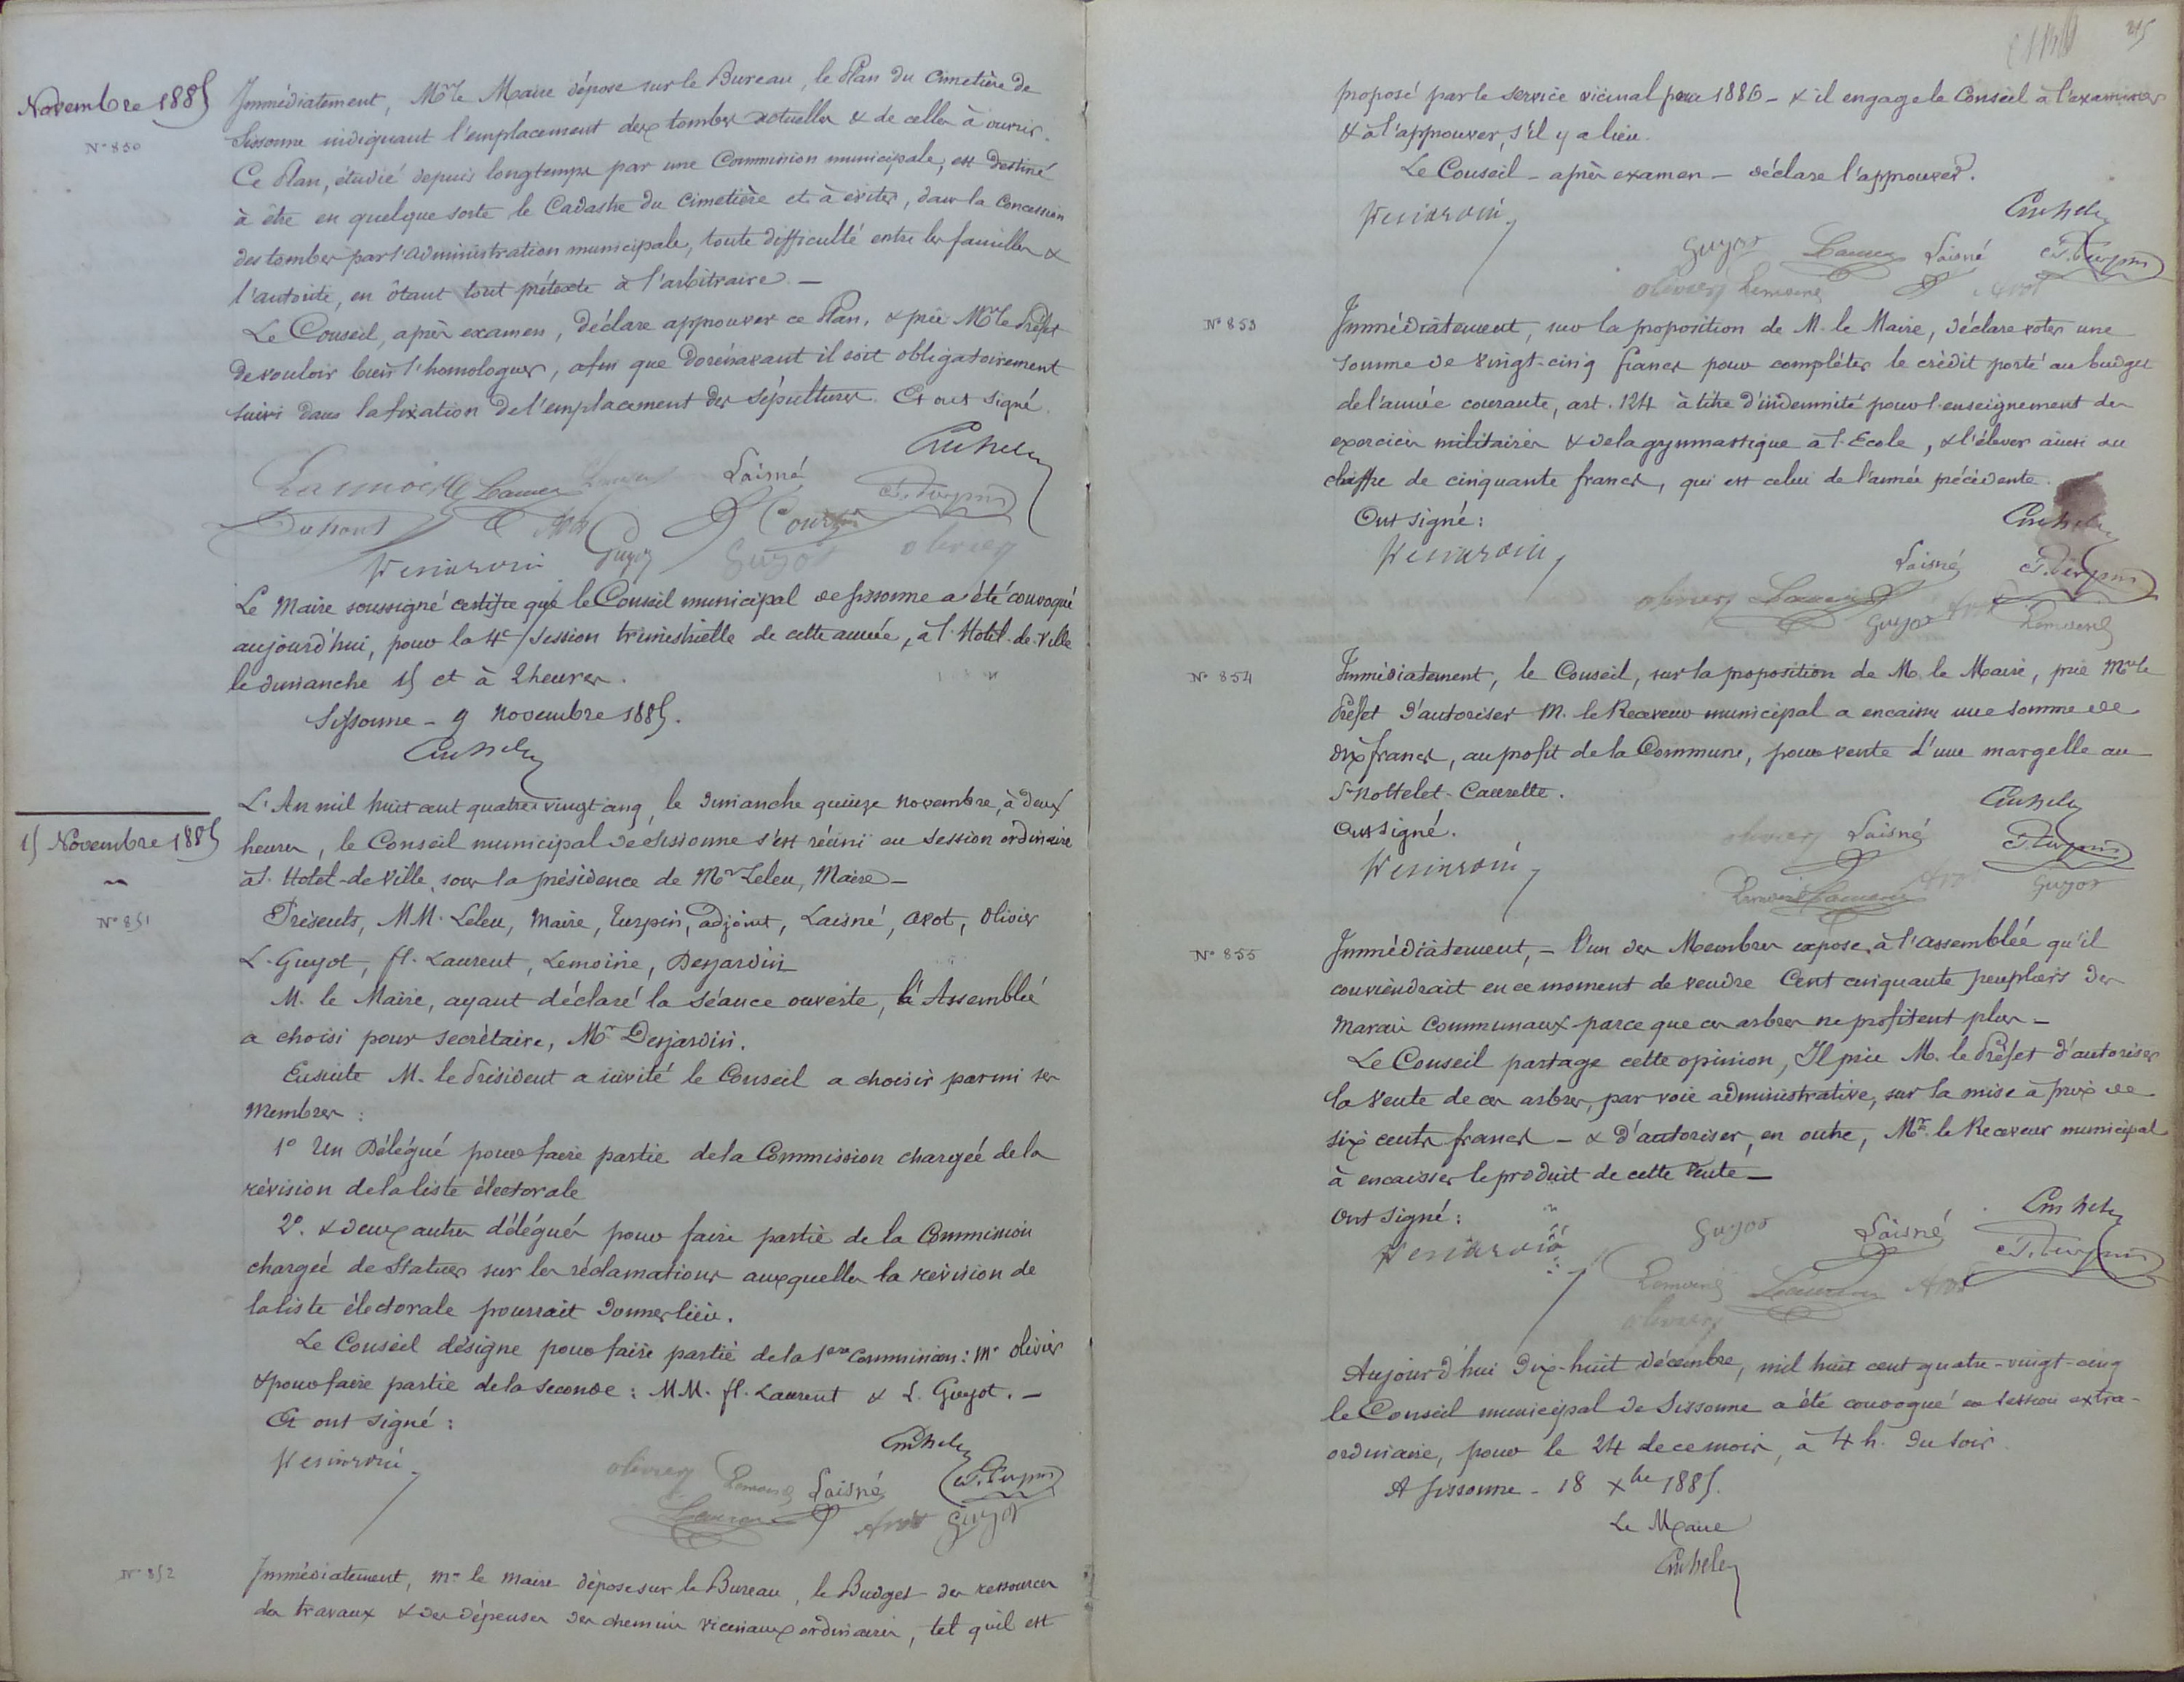 Novembre 1885
N° 850
Immédiatement, Mr le Maire dépose sur le Bureau, le Plan du Cimetière de
Sissonne indiquant l'emplacement des tombes actuelles & de celles à ouvrir.
Ce Plan, étudié depuis longtemps par une Commission municipale, est destiné
à être en quelque sorte le Cadastre du Cimetière et à éviter, dans la Concession
des tombes par l'administration municipale, toute difficulté entre les familles &
l'autorité, en ôtant tout prétexte à l'arbitraire. —
Le Conseil, après examen, déclare approuver ce Plan, & prie Mr le Préfet
de vouloir bien l'homologuer, afin que dorénavant il soit obligatoirement
suivi dans la fixation de l'emplacement des sépultures. Et ont signé.
Laisné
T. Turpin
Dupont
Courtin
Guyot
Guyot
Olivier
Le Maire soussigné certifie que le Conseil municipal de Sissonne a été convoqué
aujourd'hui, pour la 4e Session trimestrielle de cette année, à l'Hotel-de-Ville
le dimanche 15 et à 2 heures.
Sissonne - 9 Novembre 1885.
15 Novembre 1885
N° 851
L'An mil huit cent quatre vingt cinq, le dimanche quinze novembre, à deux
heures, le Conseil municipal de Sissonne s'est réuni en Session ordinaire
à l'Hotel-de-Ville, sous la présidence de Mr Leleu, Maire —
Présents, MM. Leleu, Maire, Turpin, adjoint, Laisné, Avot, Olivier
L. Guyot, fl. Laurent, Lemoine, Desjardin
M. le Maire, ayant déclaré la séance ouverte, l'Assemblée
a choisi pour secrétaire, Mr Desjardin.
Ensuite M. le Président a invité le Conseil a choisir parmi ses
Membres :
1° Un Délégué pour faire partie de la Commission chargée de la
révision de la liste électorale
2°. & deux autres délégués pour faire partie de la Commission
chargée de Statuer sur les réclamations auxquelles la révision de
la liste électorale pourrait donner lieu.
Le Conseil désigne pour faire partie de la 1ere Commission : Mr Olivier
& pour faire partie de la seconde : MM. fl. Laurent & L. Guyot. —
Et ont signé :
Desjardin
Olivier
Lemoine
Laisné
T. Turpin
Laurent
Avot
Guyot
N° 852
Immédiatement, Mr le Maire dépose sur le Bureau, le Budget des ressources
des travaux & des dépenses des chemins vicinaux ordinaires, tel qu'il est
215
proposé par le service vicinal pour 1886 - & il engage le Conseil à l'examiner
& à l'approuver, s'il y a lieu.
Le Conseil - après examen - déclare l'approuver.
Desjardin
Guyot
Laurent
Laisné
T. Turpin
Olivier
Lemoine
Avot
N° 853
Immédiatement, sur la proposition de M. le Maire, déclare voter une
somme de vingt-cinq francs pour compléter le crédit porté au budget
de l'année courante, art. 124 à titre d'indemnité pour l'enseignement des
exercices militaires & de la gymnastique à l'Ecole, & l'élever ainsi au
chiffre de cinquante francs, qui est celui de l'année précédente.
Ont signé :
Desjardin
Laisné
T. Turpin
Olivier
Laurent
Guyot
Avot
Lemoine
N° 854
Immédiatement, le Conseil, sur la proposition de M. le Maire, prie Mr le
Préfet d'autoriser M. le Receveur municipal a encaisser une somme de
dix francs, au profit de la Commune, pour vente d'une margelle au
Sr Nottelet-Caurette.
Ont signé.
Desjardin
Olivier
Laisné
T. Turpin
Lemoine
Laurent
Avot
Guyot
N° 855
Immédiatement, - l'un des Membres expose à l'assemblée qu'il
conviendrait en ce moment de vendre Cent cinquante peupliers des
Marais Communaux parce que ces arbres ne profitent plus -
Le Conseil partage cette opinion, Il prie M. le Préfet d'autoriser
la vente de ces arbres, par voie administrative, sur la mise à prix de
six cents francs - & d'autoriser, en outre, Mr le Receveur municipal
à encaisser le produit de cette vente —
Ont signé :
Desjardin
Guyot
Laisné
T. Turpin
Lemoine
Laurent
Avot
Olivier
Aujourd'hui dix-huit décembre, mil huit cent quatre-vingt-cinq
le Conseil municipal de Sissonne a été convoqué en session extra-
ordinaire, pour le 24 de ce mois, à 4 h. du soir.
A Sissonne - 18 Xbre 1885.
Le Maire